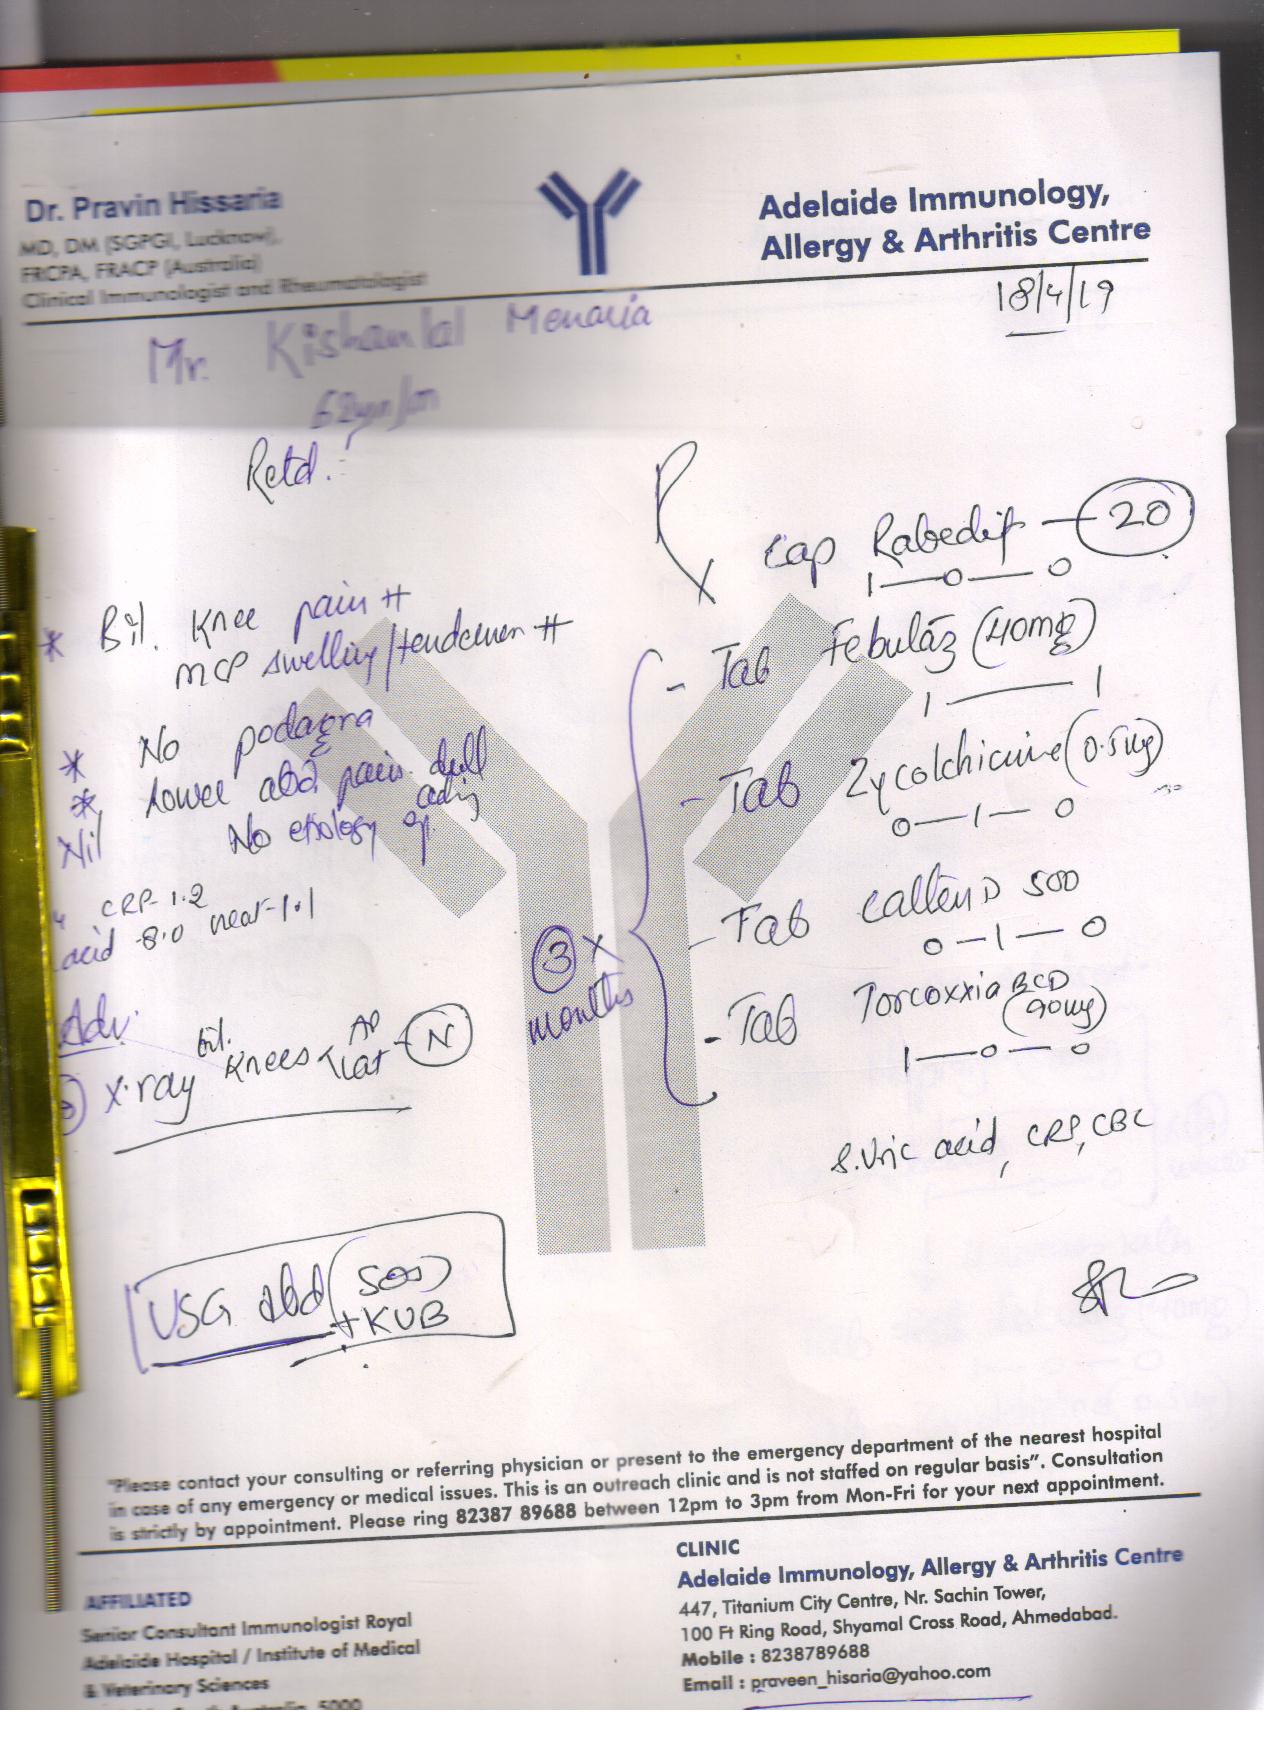 Dr. Pravin Hissaria
MD, DM (SGPGI, Lucknow),
FRCPA, FRACP (Australia)
Clinical Immunologist and Rheumatologist
Adelaide Immunology,
Allergy & Arthritis Centre
18/4/19
Mr. Kishanlal Menaria
62yrs/m
Retd.
* Bil. Knee pain ++
MCP swelling/tenderness ++
* No podagra
* Lower abd. pain. dull
No etiology
Nil
CRP- 1.2
acid -8.0 creat-1.1
Adv.
X.ray bil. Knees AP Lat - N
USG abd (SOS)
+KUB
Rx
Cap Rabedip — 20
1—0—0
- Tab Febulaz (40mg)
1 — 1
- Tab Zycolchicine (0.5mg)
0—1—0
- Tab 500
0—1—0
- Tab Torcoxxia (90mg)
1—0—0
3 x
months
S.Uric acid, CRP, CBC
"Please contact your consulting or referring physician or present to the emergency department of the nearest hospital
in case of any emergency or medical issues. This is an outreach clinic and is not staffed on regular basis". Consultation
is strictly by appointment. Please ring 82387 89688 between 12pm to 3pm from Mon-Fri for your next appointment.
AFFILIATED
Senior Consultant Immunologist Royal
Adelaide Hospital / Institute of Medical
& Veterinary Sciences
5000
CLINIC
Adelaide Immunology, Allergy & Arthritis Centre
447, Titanium City Centre, Nr. Sachin Tower,
100 Ft Ring Road, Shyamal Cross Road, Ahmedabad.
Mobile : 8238789688
Email : praveen_hisaria@yahoo.com